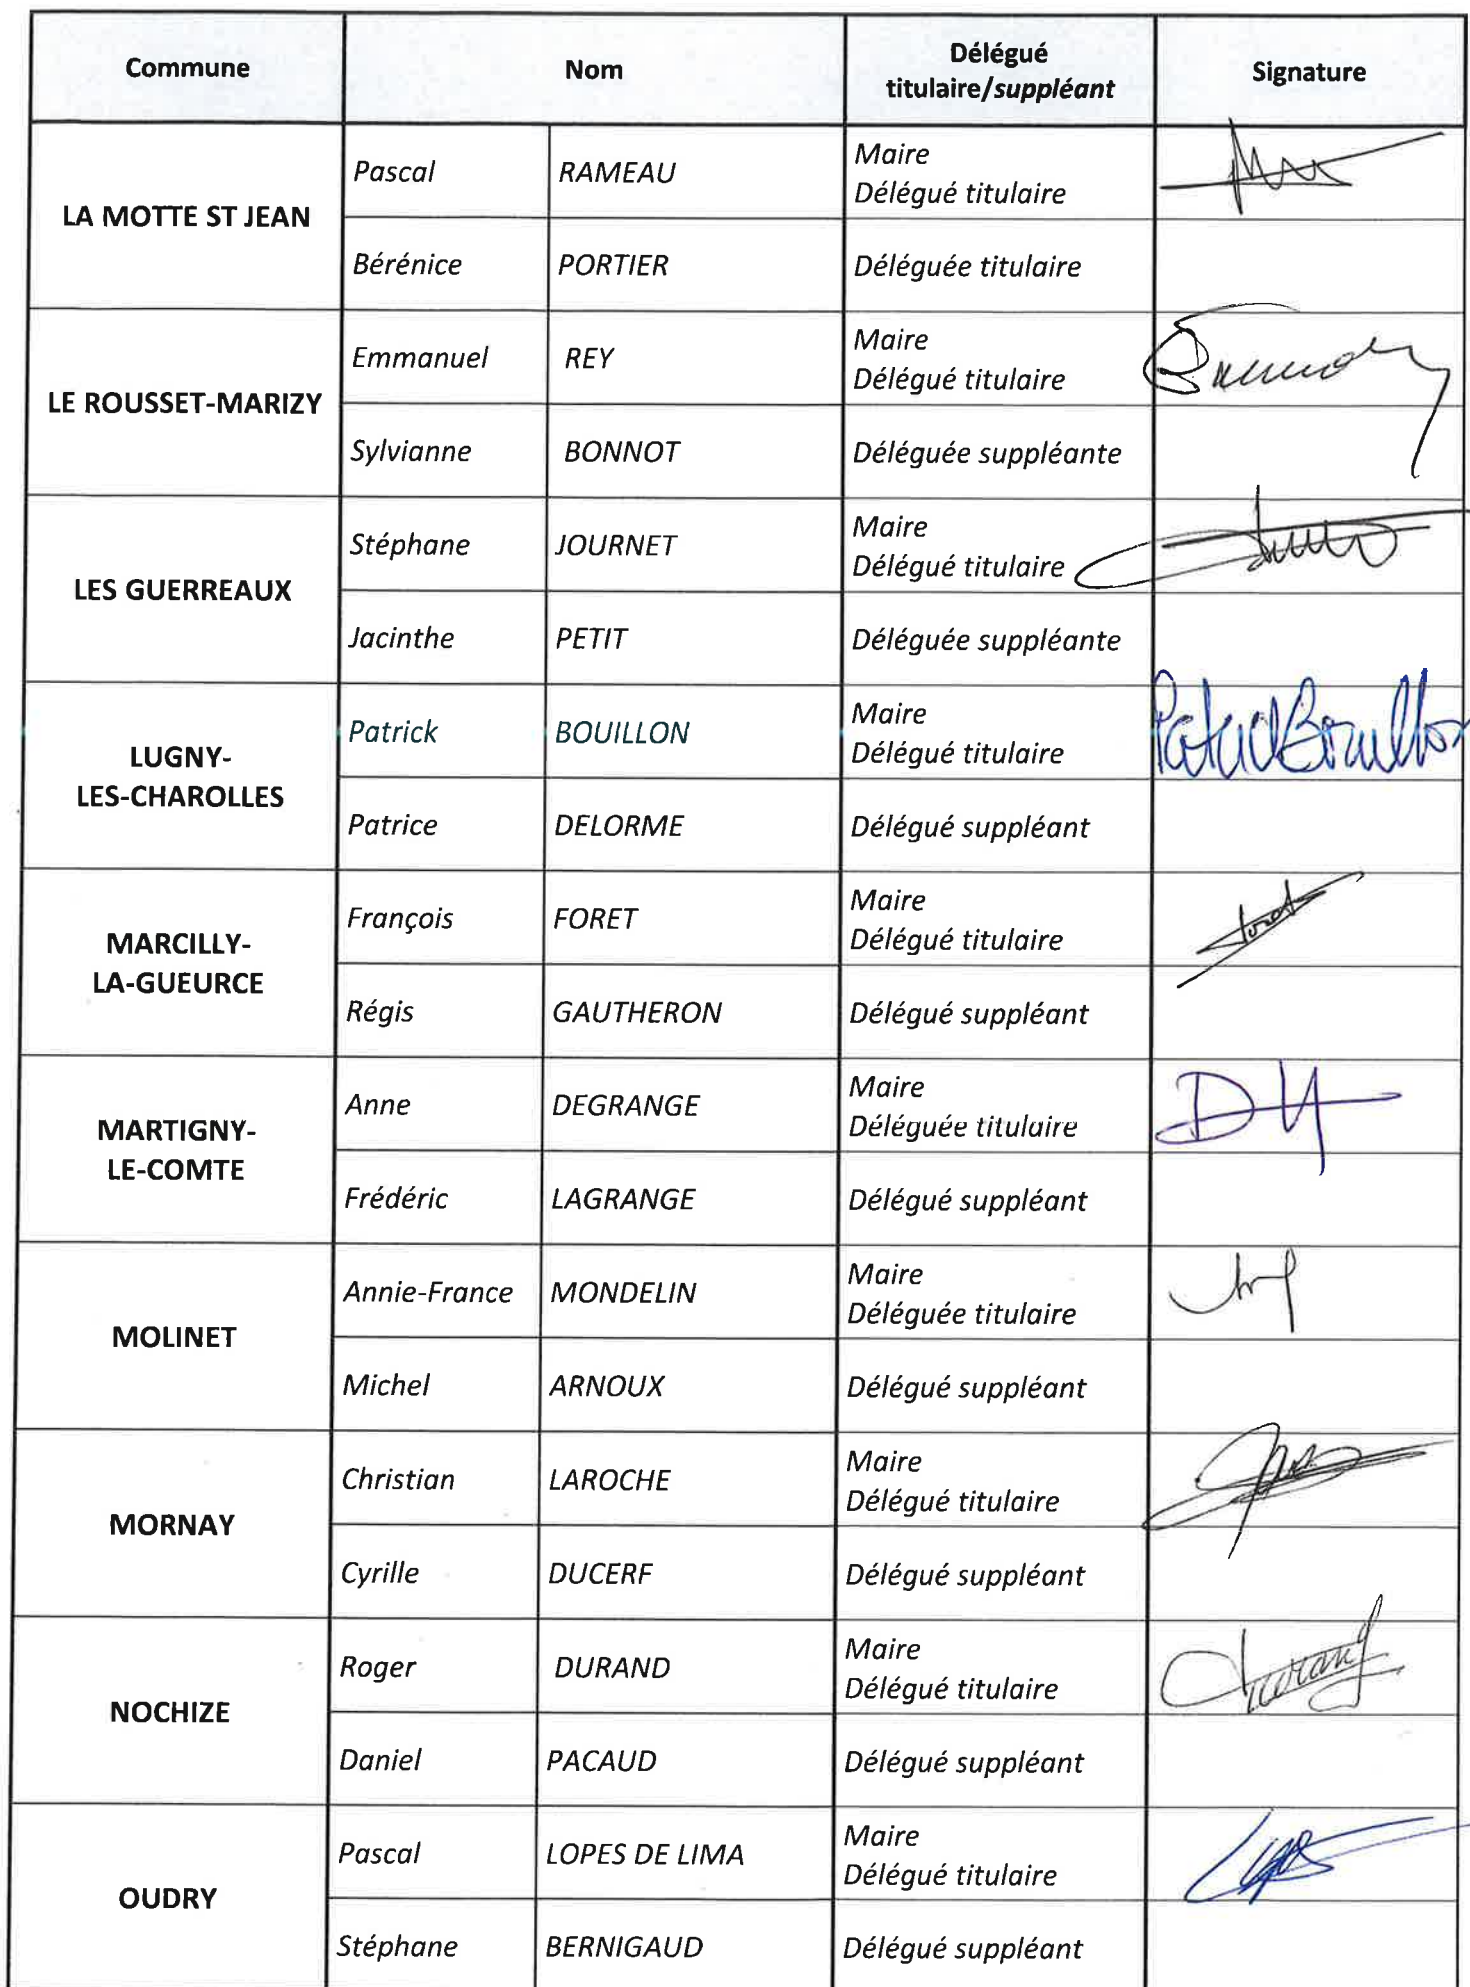 Commune Nom Délégué titulaire/suppléant Signature
LA MOTTE ST JEAN
Pascal RAMEAU Maire
Délégué titulaire
Bérénice PORTIER Déléguée titulaire
LE ROUSSET-MARIZY
Emmanuel REY Maire
Délégué titulaire
Sylvianne BONNOT Déléguée suppléante
LES GUERREAUX
Stéphane JOURNET Maire
Délégué titulaire
Jacinthe PETIT Déléguée suppléante
LUGNY-
LES-CHAROLLES
Patrick BOUILLON Maire
Délégué titulaire
Patrick Bouillon
Patrice DELORME Délégué suppléant
MARCILLY-
LA-GUEURCE
François FORET Maire
Délégué titulaire
Foret
Régis GAUTHERON Délégué suppléant
MARTIGNY-
LE-COMTE
Anne DEGRANGE Maire
Déléguée titulaire
Frédéric LAGRANGE Délégué suppléant
MOLINET
Annie-France MONDELIN Maire
Déléguée titulaire
Michel ARNOUX Délégué suppléant
MORNAY
Christian LAROCHE Maire
Délégué titulaire
Cyrille DUCERF Délégué suppléant
NOCHIZE
Roger DURAND Maire
Délégué titulaire
Durand
Daniel PACAUD Délégué suppléant
OUDRY
Pascal LOPES DE LIMA Maire
Délégué titulaire
Stéphane BERNIGAUD Délégué suppléant